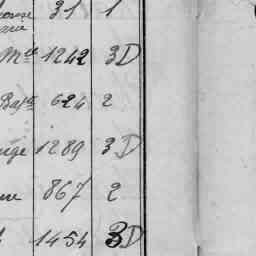 31 1
Mce 1242 3D
624 2
1289 3D
867 2
1454 3D